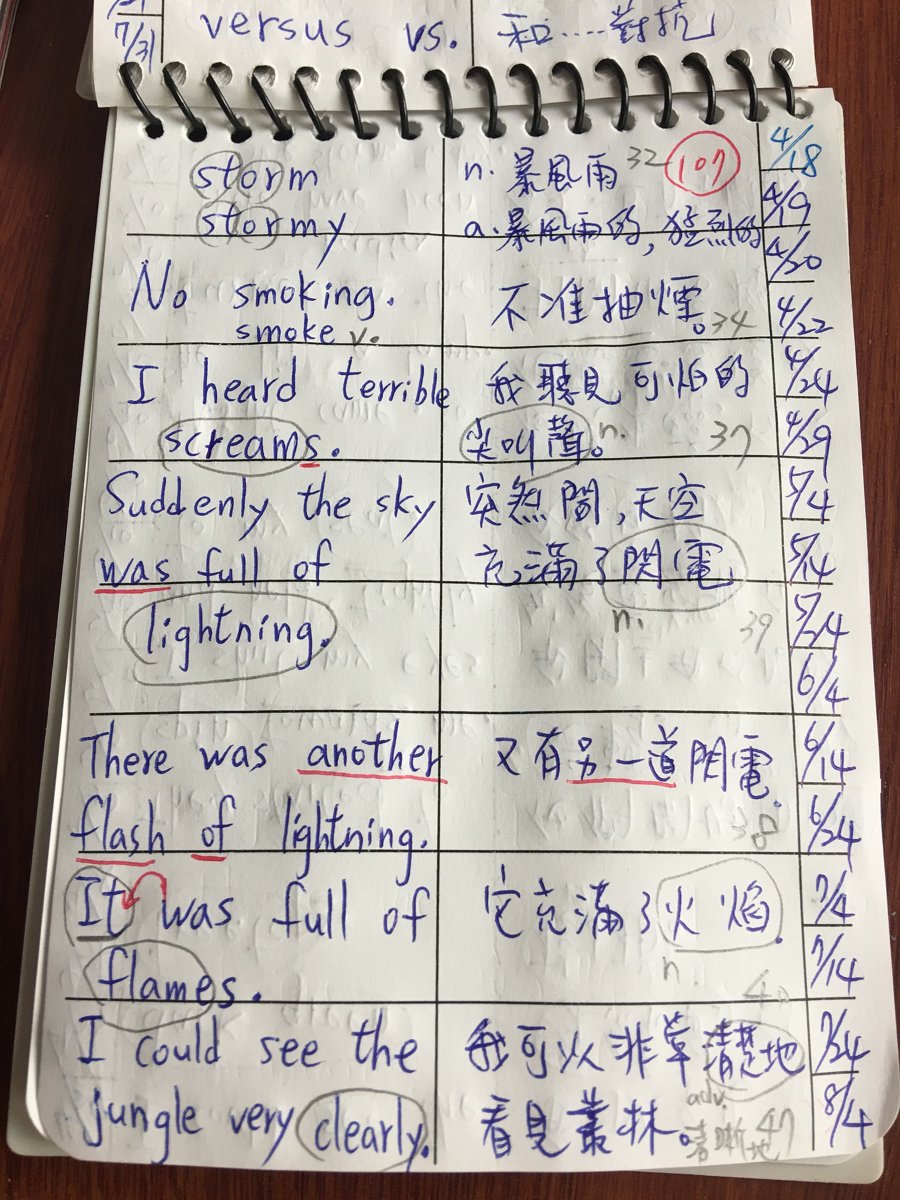 7/31 versus vs. 和....對抗
storm n. 暴風雨 32 107 4/18
stormy a. 暴風雨的,猛烈的 4/19
4/20
No smoking. 不准抽煙。34 4/22
smoke v.
I heard terrible 我聽見可怕的 4/24
screams. 尖叫聲。n. 37 4/29
Suddenly the sky 突然間,天空 5/4
was full of 充滿了閃電 5/14
lightning. n. 39 5/24
6/4
There was another 又有另一道閃電. 6/14
flash of lightning. 38 6/24
It was full of 它充滿了火焰. 7/4
flames. n. 40 7/14
I could see the 我可以非常清楚地 7/24
jungle very clearly. 看見叢林。adv. 清晰地 47 8/4